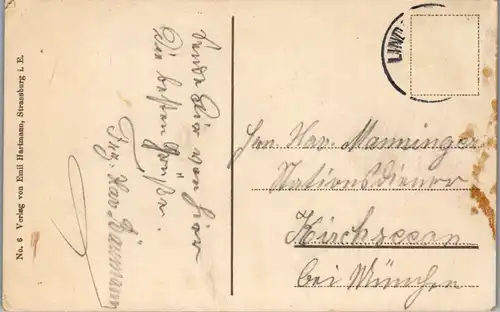 No. 6 Verlag von Emil Hartmann, Strassburg i. E.
Sende Dir von hier
die besten Grüße.
Frz. Xav. Baumann
LIND
Herrn Xav. Manninger
Stationsdiener
Kirchseeon
bei München